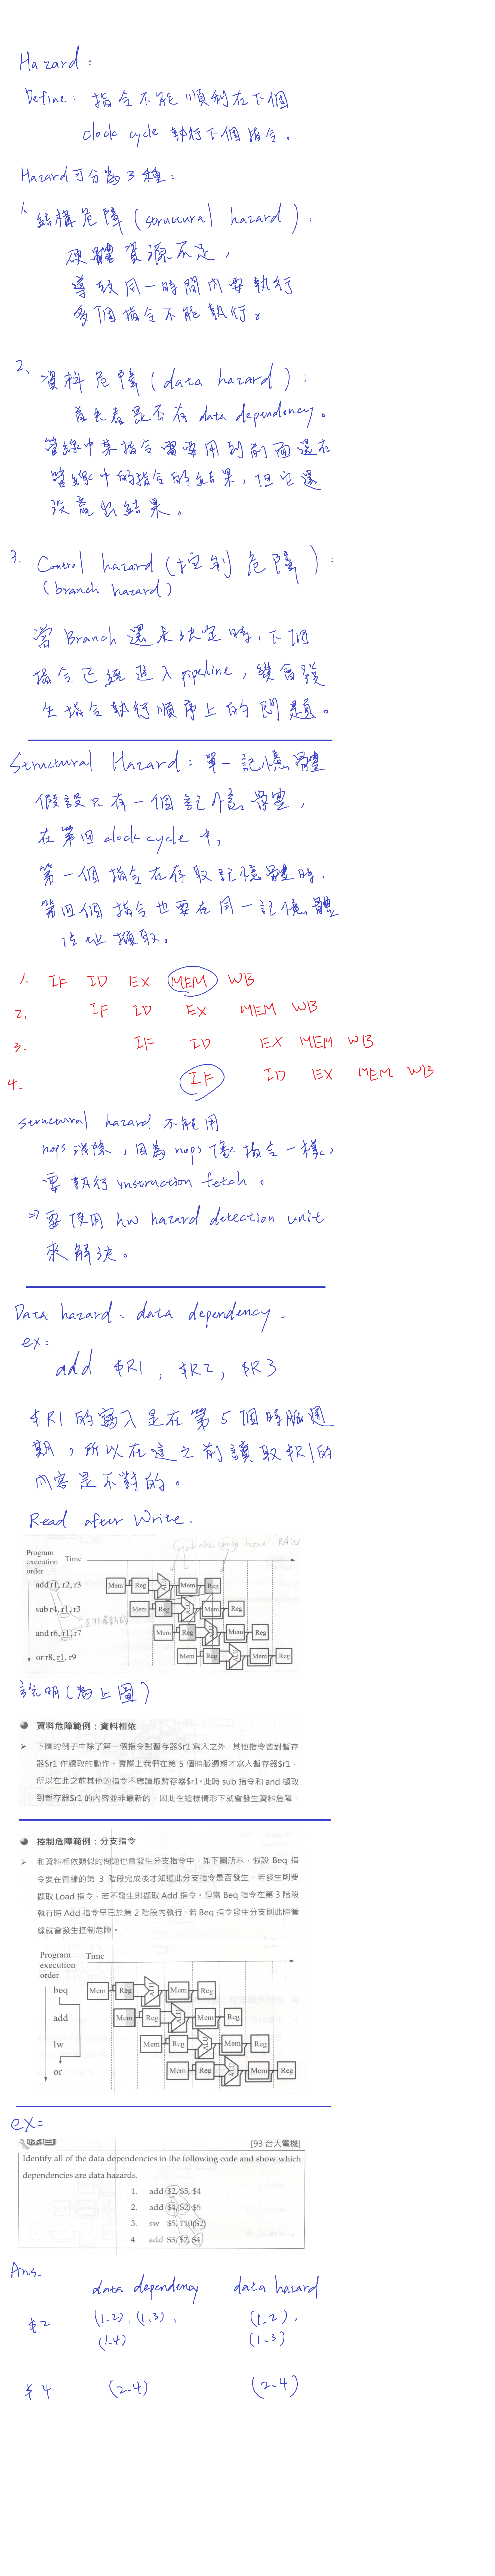 Hazard:
Define: 指令不能順利在下個
clock cycle 執行下個指令。
Hazard可分為3種:
1. 結構危障(structural hazard):
硬體資源不足,
導致同一時間內要執行
多個指令不能執行。
2. 資料危障(data hazard):
首先看是否有data dependency。
管線中某指令需要用到前面還在
管線中的指令的結果,但它還
沒產出結果。
3. Control hazard(控制危障):
(branch hazard)
當Branch還未決定時,下個
指令已經進入pipeline,變會發
生指令執行順序上的問題。
Structural Hazard:單一記憶體
假設只有一個記憶體,
在第四clock cycle中,
第一個指令在存取記憶體時,
第四個指令也要在同一記憶體
位址擷取。
1. IF ID EX MEM WB
2. IF ID EX MEM WB
3. IF ID EX MEM WB
4. IF ID EX MEM WB
structural hazard 不能用
nops 消除,因為nops像指令一樣,
要執行instruction fetch。
⇒要使用hw hazard detection unit
來解決。
Data hazard: data dependency.
ex:
add $R1, $R2, $R3
$R1的寫入是在第5個時脈週
期,所以在這之前讀取$R1的
內容是不對的。
Read after Write.
RAW
Program
execution
order
Time
add r1, r2, r3 Mem Reg ALU Mem Reg
sub r4, r1, r3 Mem Reg ALU Mem Reg
and r6, r1, r7 Mem Reg ALU Mem Reg
or r8, r1, r9 Mem Reg ALU Mem Reg
說明(為上圖)
資料危障範例:資料相依
➢ 下圖的例子中除了第一個指令對暫存器$r1寫入之外,其他指令皆對暫存
器$r1作讀取的動作。實際上我們在第5個時脈週期才寫入暫存器$r1,
所以在此之前其他的指令不應讀取暫存器$r1。此時sub指令和and擷取
到暫存器$r1的內容並非最新的,因此在這樣情形下就會發生資料危障。
控制危障範例:分支指令
➢ 和資料相依類似的問題也會發生分支指令中。如下圖所示,假設Beq指
令要在管線的第3階段完成後才知道此分支指令是否發生,若發生則要
擷取Load指令,若不發生則擷取Add指令。但當Beq指令在第3階段
執行時Add指令早已於第2階段內執行。若Beq指令發生分支則此時管
線就會發生控制危障。
Program
execution
order
Time
beq Mem Reg ALU Mem Reg
add Mem Reg ALU Mem Reg
lw Mem Reg ALU Mem Reg
or Mem Reg ALU Mem Reg
ex:
[93 台大電機]
Identify all of the data dependencies in the following code and show which
dependencies are data hazards.
1. add $2, $5, $4
2. add $4, $2, $5
3. sw $5, 110($2)
4. add $3, $2, $4
Ans.
data dependency data hazard
$2 (1-2), (1-3), (1-2),
(1-4) (1-3)
$4 (2-4) (2-4)